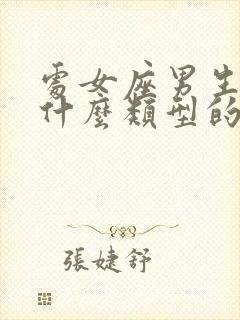 處女座男生
什麼類型的
張婕舒